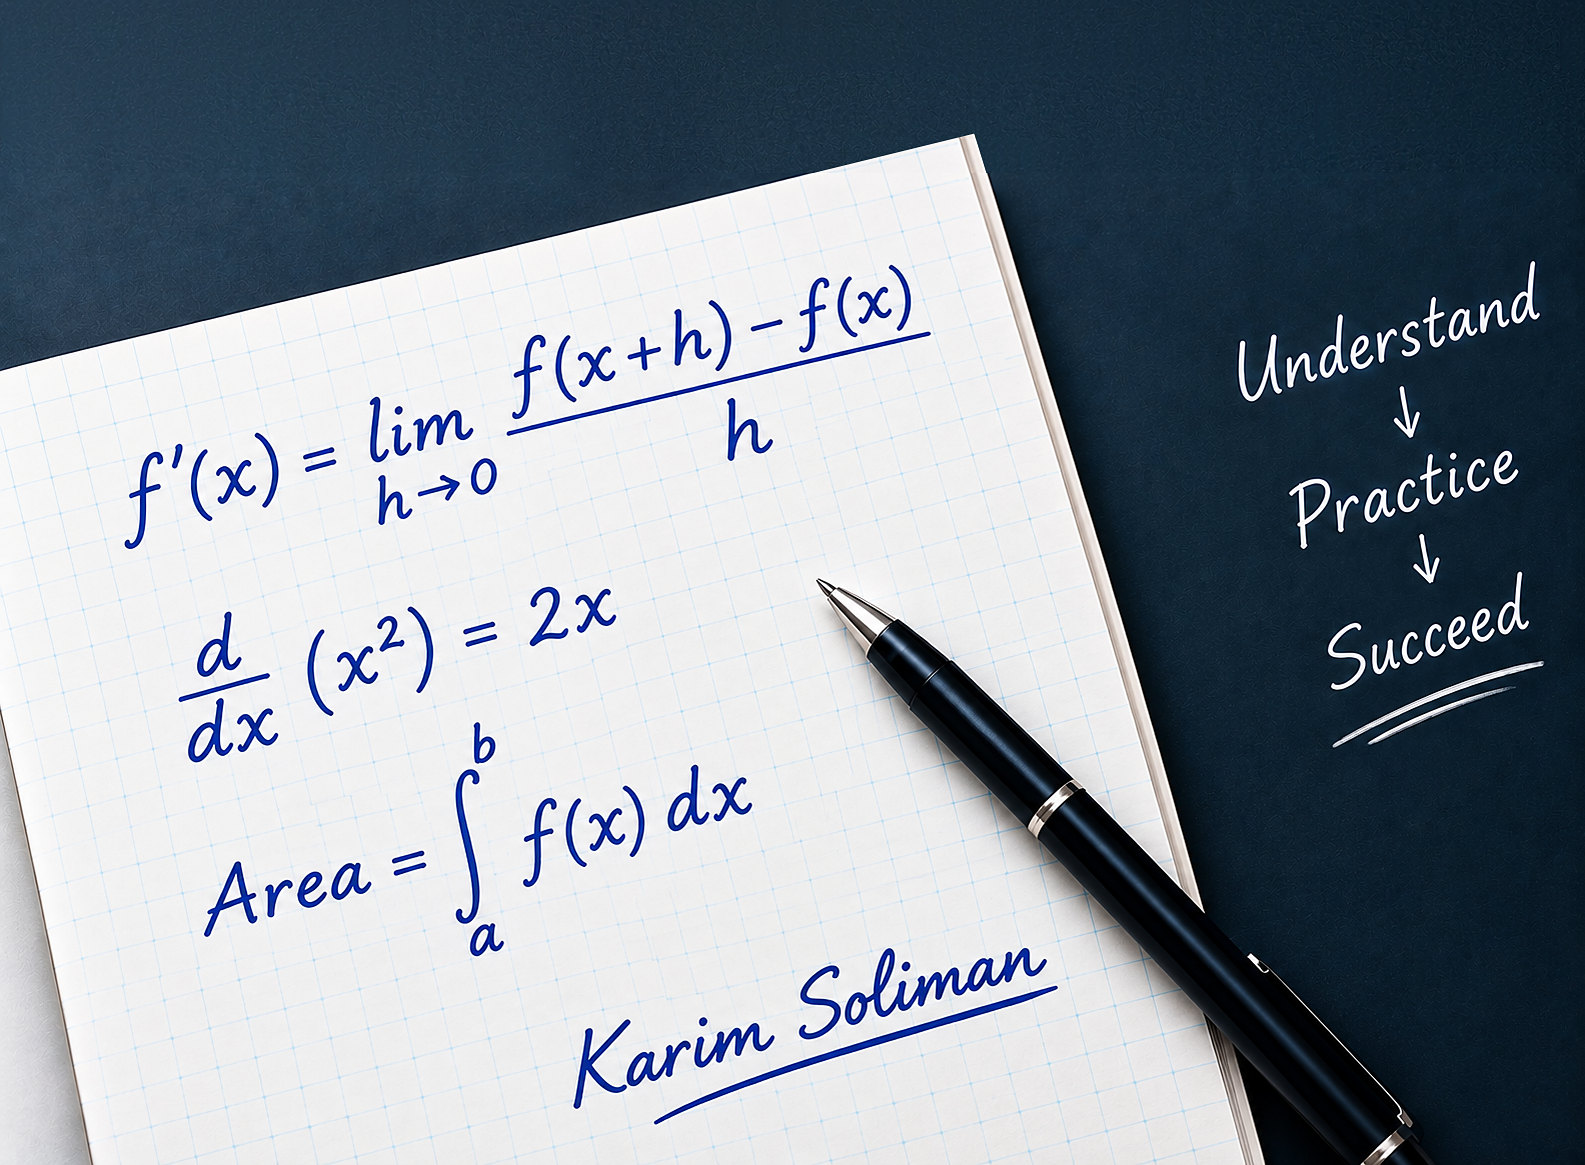 f'(x) = lim h→0 f(x+h) – f(x) / h
d/dx (x²) = 2x
Area = ∫ₐᵇ f(x) dx
Karim Soliman
Understand
↓
Practice
↓
Succeed